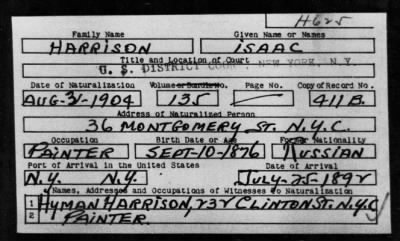 H625
Family Name Given Name or Names
HARRISON ISAAC
Title and Location of Court
U. S. DISTRICT COURT, NEW YORK, N. Y.
Date of Naturalization Volume or Bundle No. Page No. Copy of Record No.
AUG-31-1904 135 411 B.
Address of Naturalized Person
36 MONTGOMERY ST. N.Y.C.
Occupation Birth Date or Age Former Nationality
PAINTER SEPT-10-1876 RUSSIAN
Port of Arrival in the United States Date of Arrival
N.Y. N.Y. JULY-25-1892
Names, Addresses and Occupations of Witnesses To Naturalization
1 HYMAN HARRISON, 232 CLINTON ST. N.Y.C
2 PAINTER.